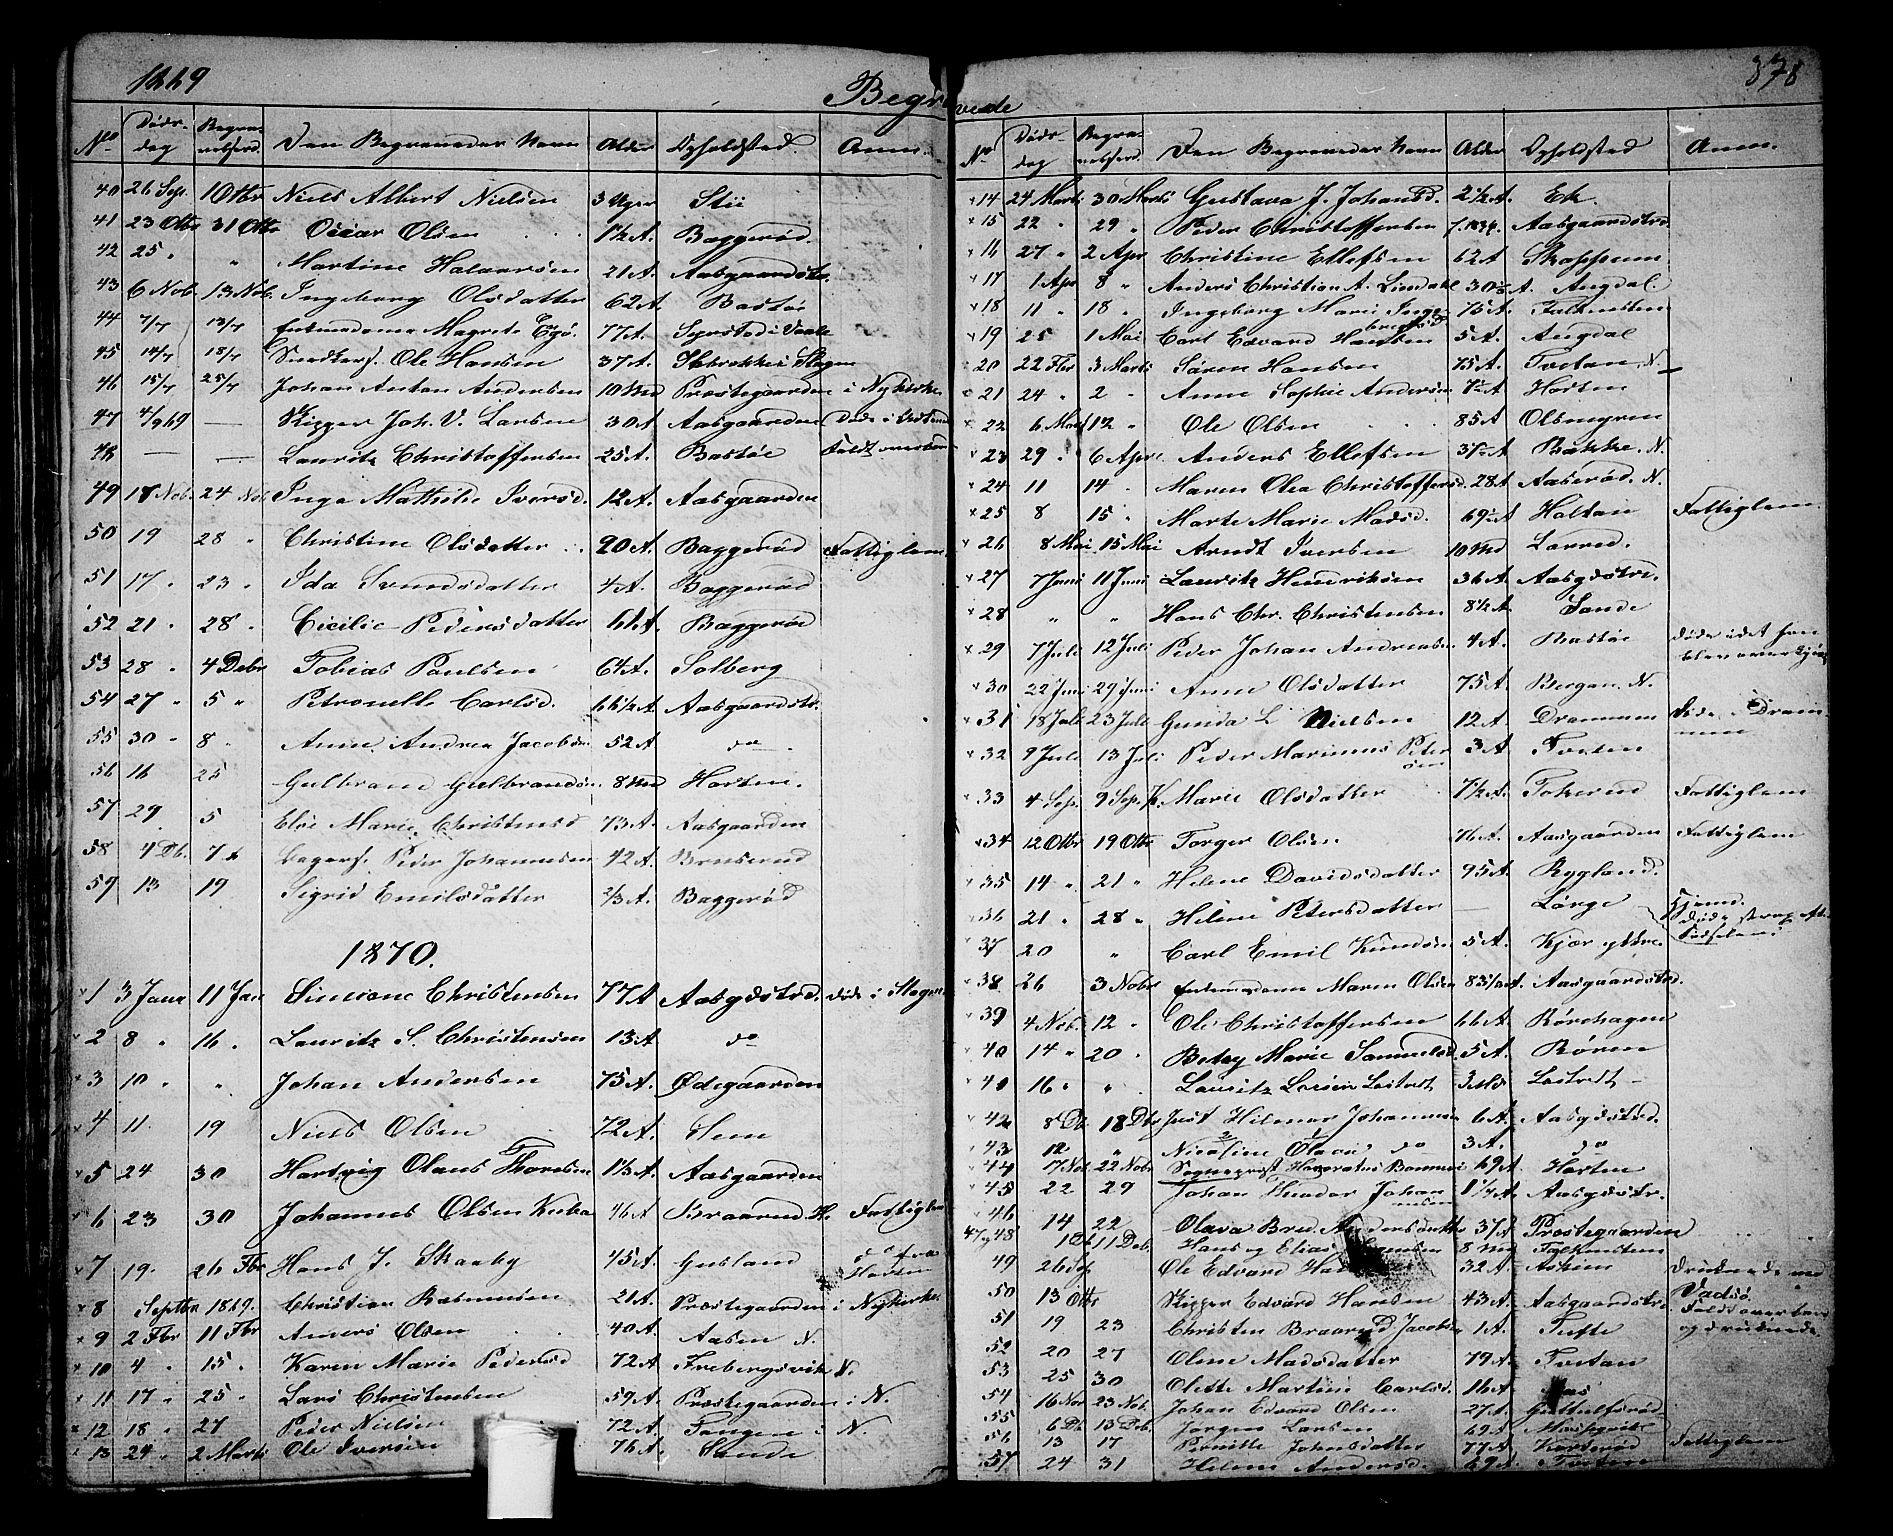 1869
Begra
No Døds-dag Begra-velsesd. Den Begravedes Navn Alder Opholdsted Anm.
40 26 Sep. 1 Otbr Niels Albert Nielsen 3 Uger Stii
41 23 Otbr 31 Otbr Oscar Olsen 1½ A. Baggerød.
42 25 " " Martine Halvorsen 21 A. Aasgaardstr.
43 6 Nob. 13 Nob. Ingeborg Olsdatter 62 A. Bastø
44 7/7 13/7 Enkemadame Magrete 77 A.
45 14/7 18/7 Ole Hansen 37 A. Slagen
46 15/7 25/7 Johan Anton Andersen 10 Md Præstegaarden i Nykirke
47 4/9 69 — Skipper Joh. V. Larsen 30 A Aasgaarden Døde i
48 — — Lauritz Christoffersen 25 A. Bastøe Faldt overbord
49 18 Nob. 24 Nob. Inga Mathilde Iversd. 12 A. Aasgaarden
50 19 28 " Christine Olsdatter 90 A. Baggerød Fattiglem
51 17 " 23 " Ida Svendsdatter 4 A. Baggerød
52 21 " 28 " Cicilie Pedersdatter 61 A. Baggerød
53 28 " 4 Debr Tobias Paulsen 64 A. Solberg
54 27 " 5 " Petronelle Carlsd. 66½ A. Aasgaardstr.
55 30 " 8 " Anne Andrea Jacobsen 52 A do
56 16 25 Gulbrand Gulbrandsen. 8 Md Horten.
57 29 5 Else Marie Christensd 73 A. Aasgaarden
58 4 Db. 7 Peder Johannesen 42 A. Bruserud
59 13 19 Sigrid Emilsdatter 2/3 A. Baggerød
1870.
1 3 Janr 11 Jan Simeone Christensen 77 A Aasgdstrd. døde i Slagen
2 8 " 16 " Lauritz S. Christensen 13 A do
3 10 " " Johan Andersen 75 A. Ødegaarden
4 11 19 Niels Olsen 72 A. Hem
5 24 30 Hartvig Olaus Thoresen Aasgaarden
6 23 30 Johannes Olsen 46 A Fattiglem
7 19 26 Fbr Hans J. Skaaby 45 A. Gusland Horten
8 Septbr 1869. Christian Rasmussen 21 A. Præstegaarden i Nykirke
9 2 Fbr 11 Fbr Anders Olsen 40 A. Aasen N.
10 4 " 15 " Karen Marie Pedersd 72 A. Frebergsvik N.
11 17 " 25 " Lars Christensen 59 A. Præstegaarden i N.
12 18 " 27 Peder Nielsen 72 A. Tangen i N.
13 24 " 2 Marts Ole Iversen 76 A. Sande
378
vede
No Døds-dag Begra-velsesd. Den Begravedes Navn Alder Opholdsted Anm.
14 24 Marts 30 Marts Gustava J. Johansd. 2½ A. Ek.
15 22 " 29 " Peder Christoffersen f. 1834. Aasgaardstrd.
16 27 " 2 Apr Christine Ellefsen 62 A Skoppum
17 1 Apr 8 " Anders Christian A. Lindahl Augdal.
18 11 " 18 " Ingeborg Marie Inge-bregtsd 75 A. Falkensten
19 25 1 Mai Carl Edvard Hansen 5 A. Augdal
20 22 Fbr 3 Marts Søren Hansen 75 A. Tvetan N.
21 24 " 2 " Anne Sophie Andersen Horten
22 6 Marts 12 " Ole Olsen 85 A Olsmyren
23 29 " 6 Apr. Anders Ellefsen Bakke. N.
24 11 14 " Maren Olea Christoffersd. 28 A Aaserød. N.
25 8 15 " Marte Marie Madsd. 69 A Holtan Fattiglem.
26 8 Mai 15 Mai Arndt Iversen 10 Md
27 7 Juni 11 Juni Lauritz Henriksen 36 A. Aasgdstrd.
28 " " Hans Chr. Christensen 8½ A. Sande
29 7 Juli 12 Juli Peder Johan Andreasen 4 A. Bastøe døde idet han blev overkjør
30 22 Juni 29 Juni Anne Olsdatter 75 A. Bergan. N.
31 18 Juli 23 Juli Gunda L Nielsen 12 A Drammen Døde i Drammen
32 9 Juli 13 Juli Peder Marinus Petersen 3 A. Tveten
33 4 Sep. 9 Sep. K. Marie Olsdatter 7½ A. Tokerud Fattiglem
34 12 Otbr 19 Otbr Torger Olsen 76 A. Aasgaarden Fattiglem
35 14 " 21 " Helene Davidsdatter 95 A. Rygland.
36 21 " 28 " Helene Petersdatter — Lørge Hjemd. døde strax efter Fødselen
37 20 " Carl Emil Knudsen 5 A. Kjær ydtre.
38 26 3 Nobr Enkemadame Maren Olsen Aasgaardstrd.
39 4 Nob. 12 " Ole Christoffersen 66 A. Rørehagen
40 14 " 20 " Betzy Marie Samuelsd 5 A. Røren
40 16 " " Lauritz Larsen
42 8 Db. 18 Dbr Just Hilmar Johannsen 6 A. Aasgdstrd.
43 12 " Nicoline Olava do 3 A. do
44 7 Nob. 22 Nobr Sogneprest Honoratus Bonnevi 69 A Horten
45 22 29 Johan Johannsen 1¼ A. Aasgdstr.
46 14 22 Olava Andersdatter Prestegaarden
47 og 48 1 Db 11 Deb. Hans og Elias 8 Md Falkensten
49 26 Sep Ole Edvard 32 A. druknede ved Vadsø
50 13 Otbr Skipper Edvard Hansen 43 A. Aasgaardstrd Faldt overbord og druknede
51 19 23 Christen Braarud Jacobsen 1 A. Tufte
52 20 27 Olene Madsdatter 79 A. Tvetan
53 25 30 Olette Martine Carlsd. 16 A. Aas
54 16 Nov 23 Nob. Johan Edvard Olsen 27 A.
55 6 Db 15 Deb. Jørgen Larsen 69 A.
56 13 17 Pernille Johnsdatter 77 A Fattiglem
57 24 31 Helene Andersd. 69 A Tveten